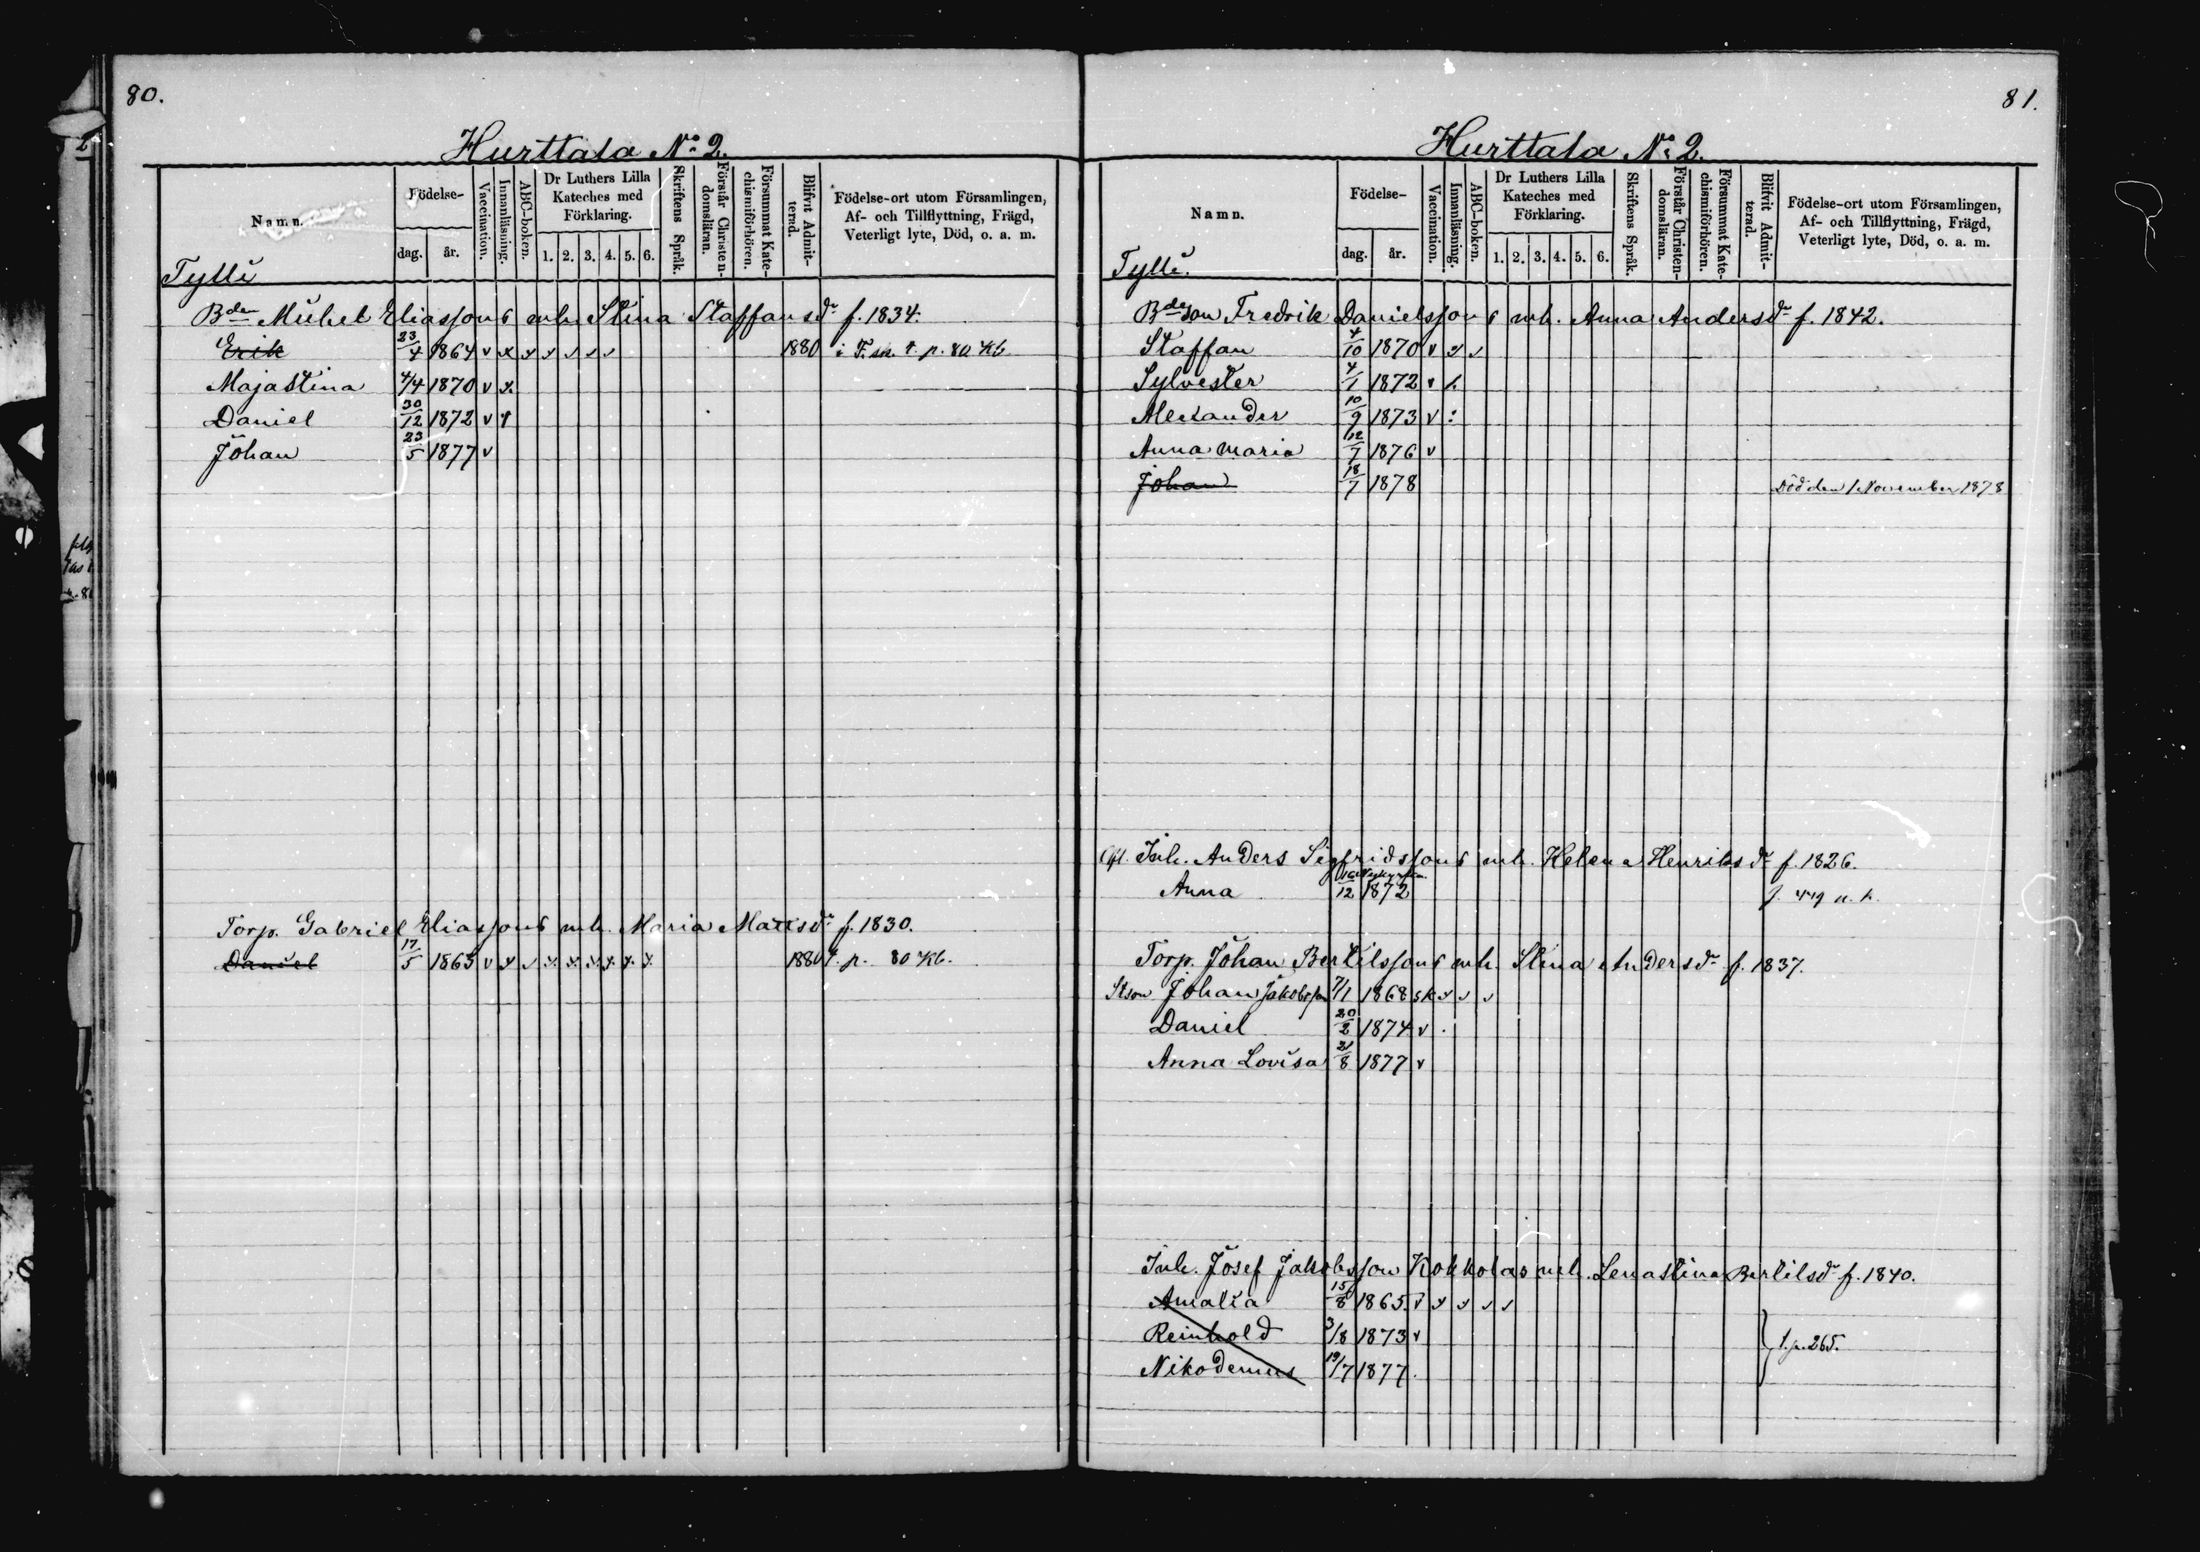 80.
Hurttala No 2.
Namn.
Födelse-
dag.
år.
Vaccination.
Innanläsning.
ABC-boken.
Dr Luthers Lilla
Kateches med
Förklaring.
1. 2. 3. 4. 5. 6.
Skriftens Språk.
Förstår Christen-
domsläran.
Försummat Kate-
chismiförhören.
Blifvit Admit-
terad.
Födelse-ort utom Församlingen,
Af- och Tillflyttning, Frägd,
Veterligt lyte, Död, o. a. m.
Tylli
Bden Mickel Eliassons mh. Stina Staffansdr f. 1834.
Erik 23/4 1864 v x x x v v v 1880 p. 80 Kb
Majastina 4/4 1870 v x
Daniel 30/12 1872 v
Johan 23/5 1877 v
Torp. Gabriel Eliassons mh. Maria Mattsdr f. 1830.
Daniel 17/5 1863 v x v x x x x x x 1880 p. 80 Kb.
81.
Hurttala No 2.
Namn.
Födelse-
dag.
år.
Vaccination.
Innanläsning.
ABC-boken.
Dr Luthers Lilla
Kateches med
Förklaring.
1. 2. 3. 4. 5. 6.
Skriftens Språk.
Förstår Christen-
domsläran.
Försummat Kate-
chismiförhören.
Blifvit Admit-
terad.
Födelse-ort utom Församlingen,
Af- och Tillflyttning, Frägd,
Veterligt lyte, Död, o. a. m.
Tylli.
Bdeson Fredrik Danielssons mh. Anna Andersdr f. 1842.
Staffan 4/10 1870 v x v
Sylvester 4/1 1872 v
Alexander 10/9 1873 v :
Anna Maria 12/7 1876 v
Johan 18/7 1878 Död den 1 November 1878
Inh. Anders Sigfridssons mh. Helena Henriksdr f. 1826.
Anna 16/12 1872 449
Torp. Johan Bertilssons mh. Stina Andersdr f. 1837.
Stson Johan Jakobsson 7/1 1868 sk v v v
Daniel 20/2 1874 v .
Anna Lovisa 21/8 1877 v
Inh. Josef Jakobsson Kokkolas mh. Lenastina Bertilsdr f. 1840.
Amalia 15/8 1865 v v v v v
Reinhold 3/8 1873 v
t. p. 265.
Nikodemus 19/7 1877.